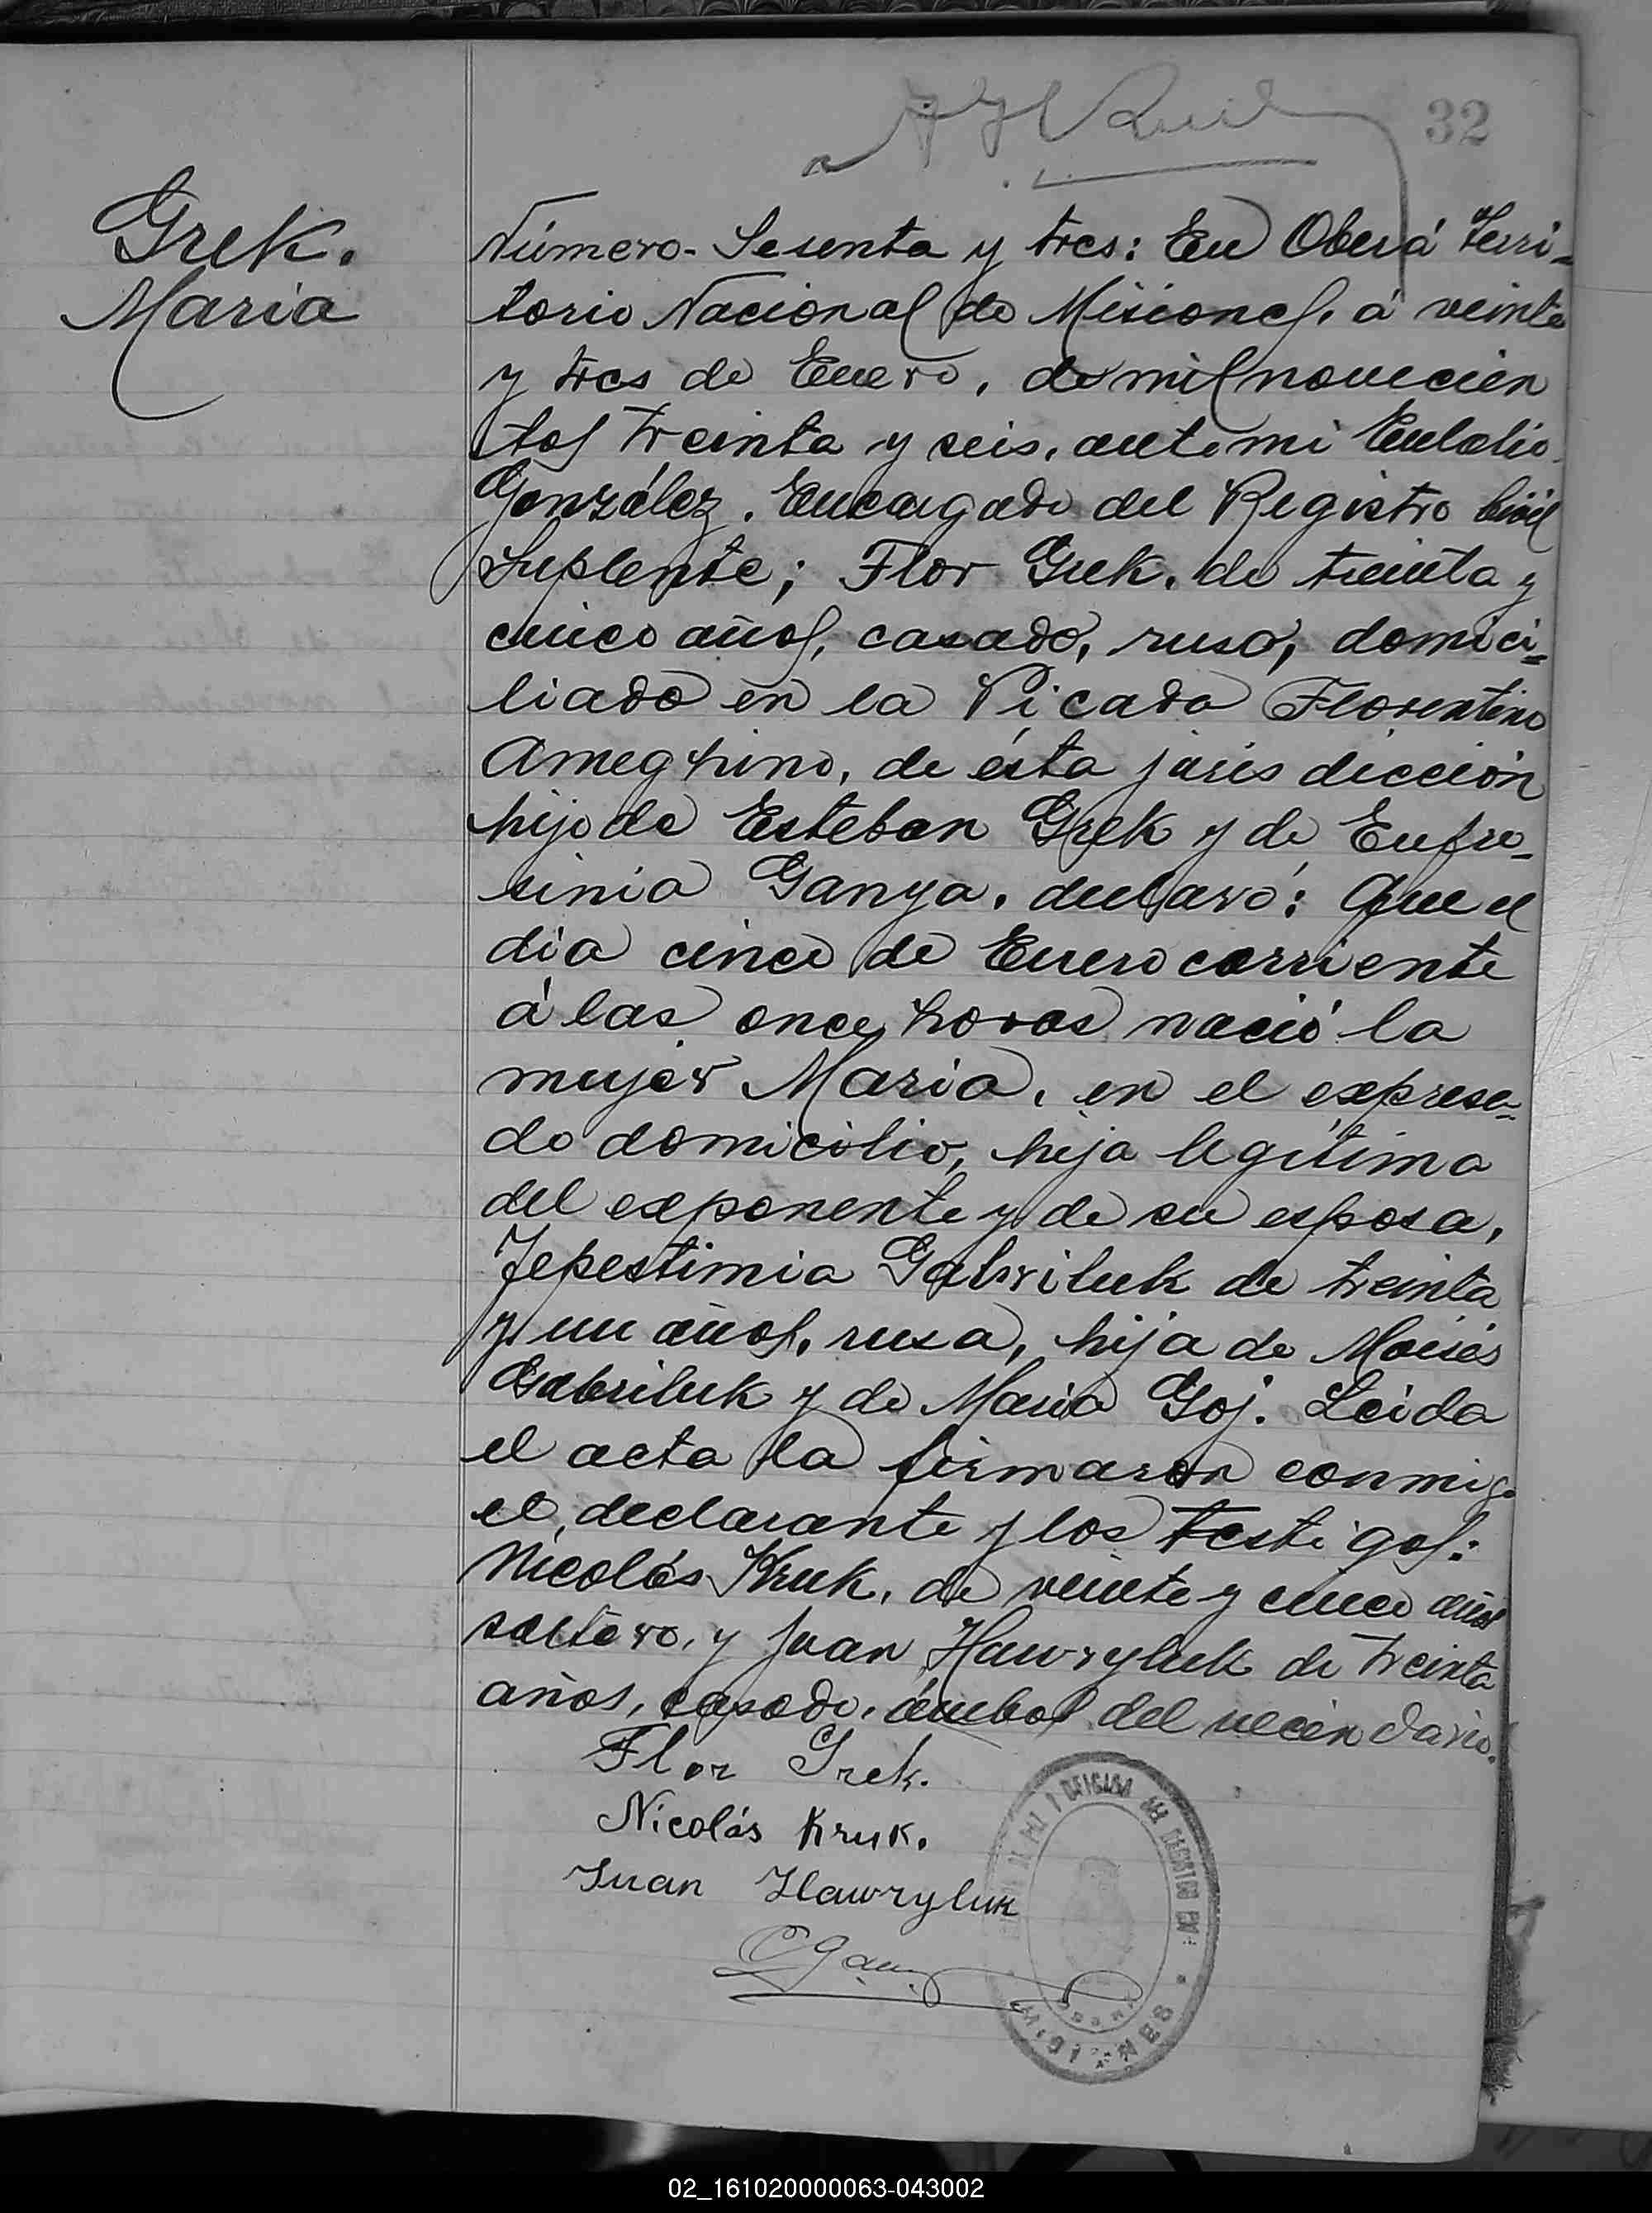 32
Grek.
Maria
Número - Sesenta y tres: En Oberá Terri-
torio Nacional de Misiones, á veinte
y tres de Enero, de mil novecien
tos treinta y seis, ante mi Eulalio
González, Encargado del Registro Civil
Suplente; Flor Grek, de treinta y
cinco años, casado, ruso, domici-
liado en la Picada Florentino
Ameghino, de ésta jurisdicción
hijo de Esteban Grek y de Eufro-
sinia Ganya, declaró: Que el
dia cinco de Enero corriente
á las once horas nació la
mujer Maria, en el expresa-
do domicilio, hija legítima
del exponente y de su esposa,
Fepestimia Gabriluk de treinta
y un años, rusa, hija de Moisés
Gabriluk y de Maria Goj. Leida
el acta la firmaron conmigo
el declarante y los testigos:
Nicolás Kruk, de veinte y cinco años
soltero, y Juan Hawryluk de treinta
años, casado, ámbos del vecindario.
Flor Grek.
Nicolás Kruk.
Juan Hawryluk
OFICINA DEL REGISTRO
MISIONES
02_161020000063-043002